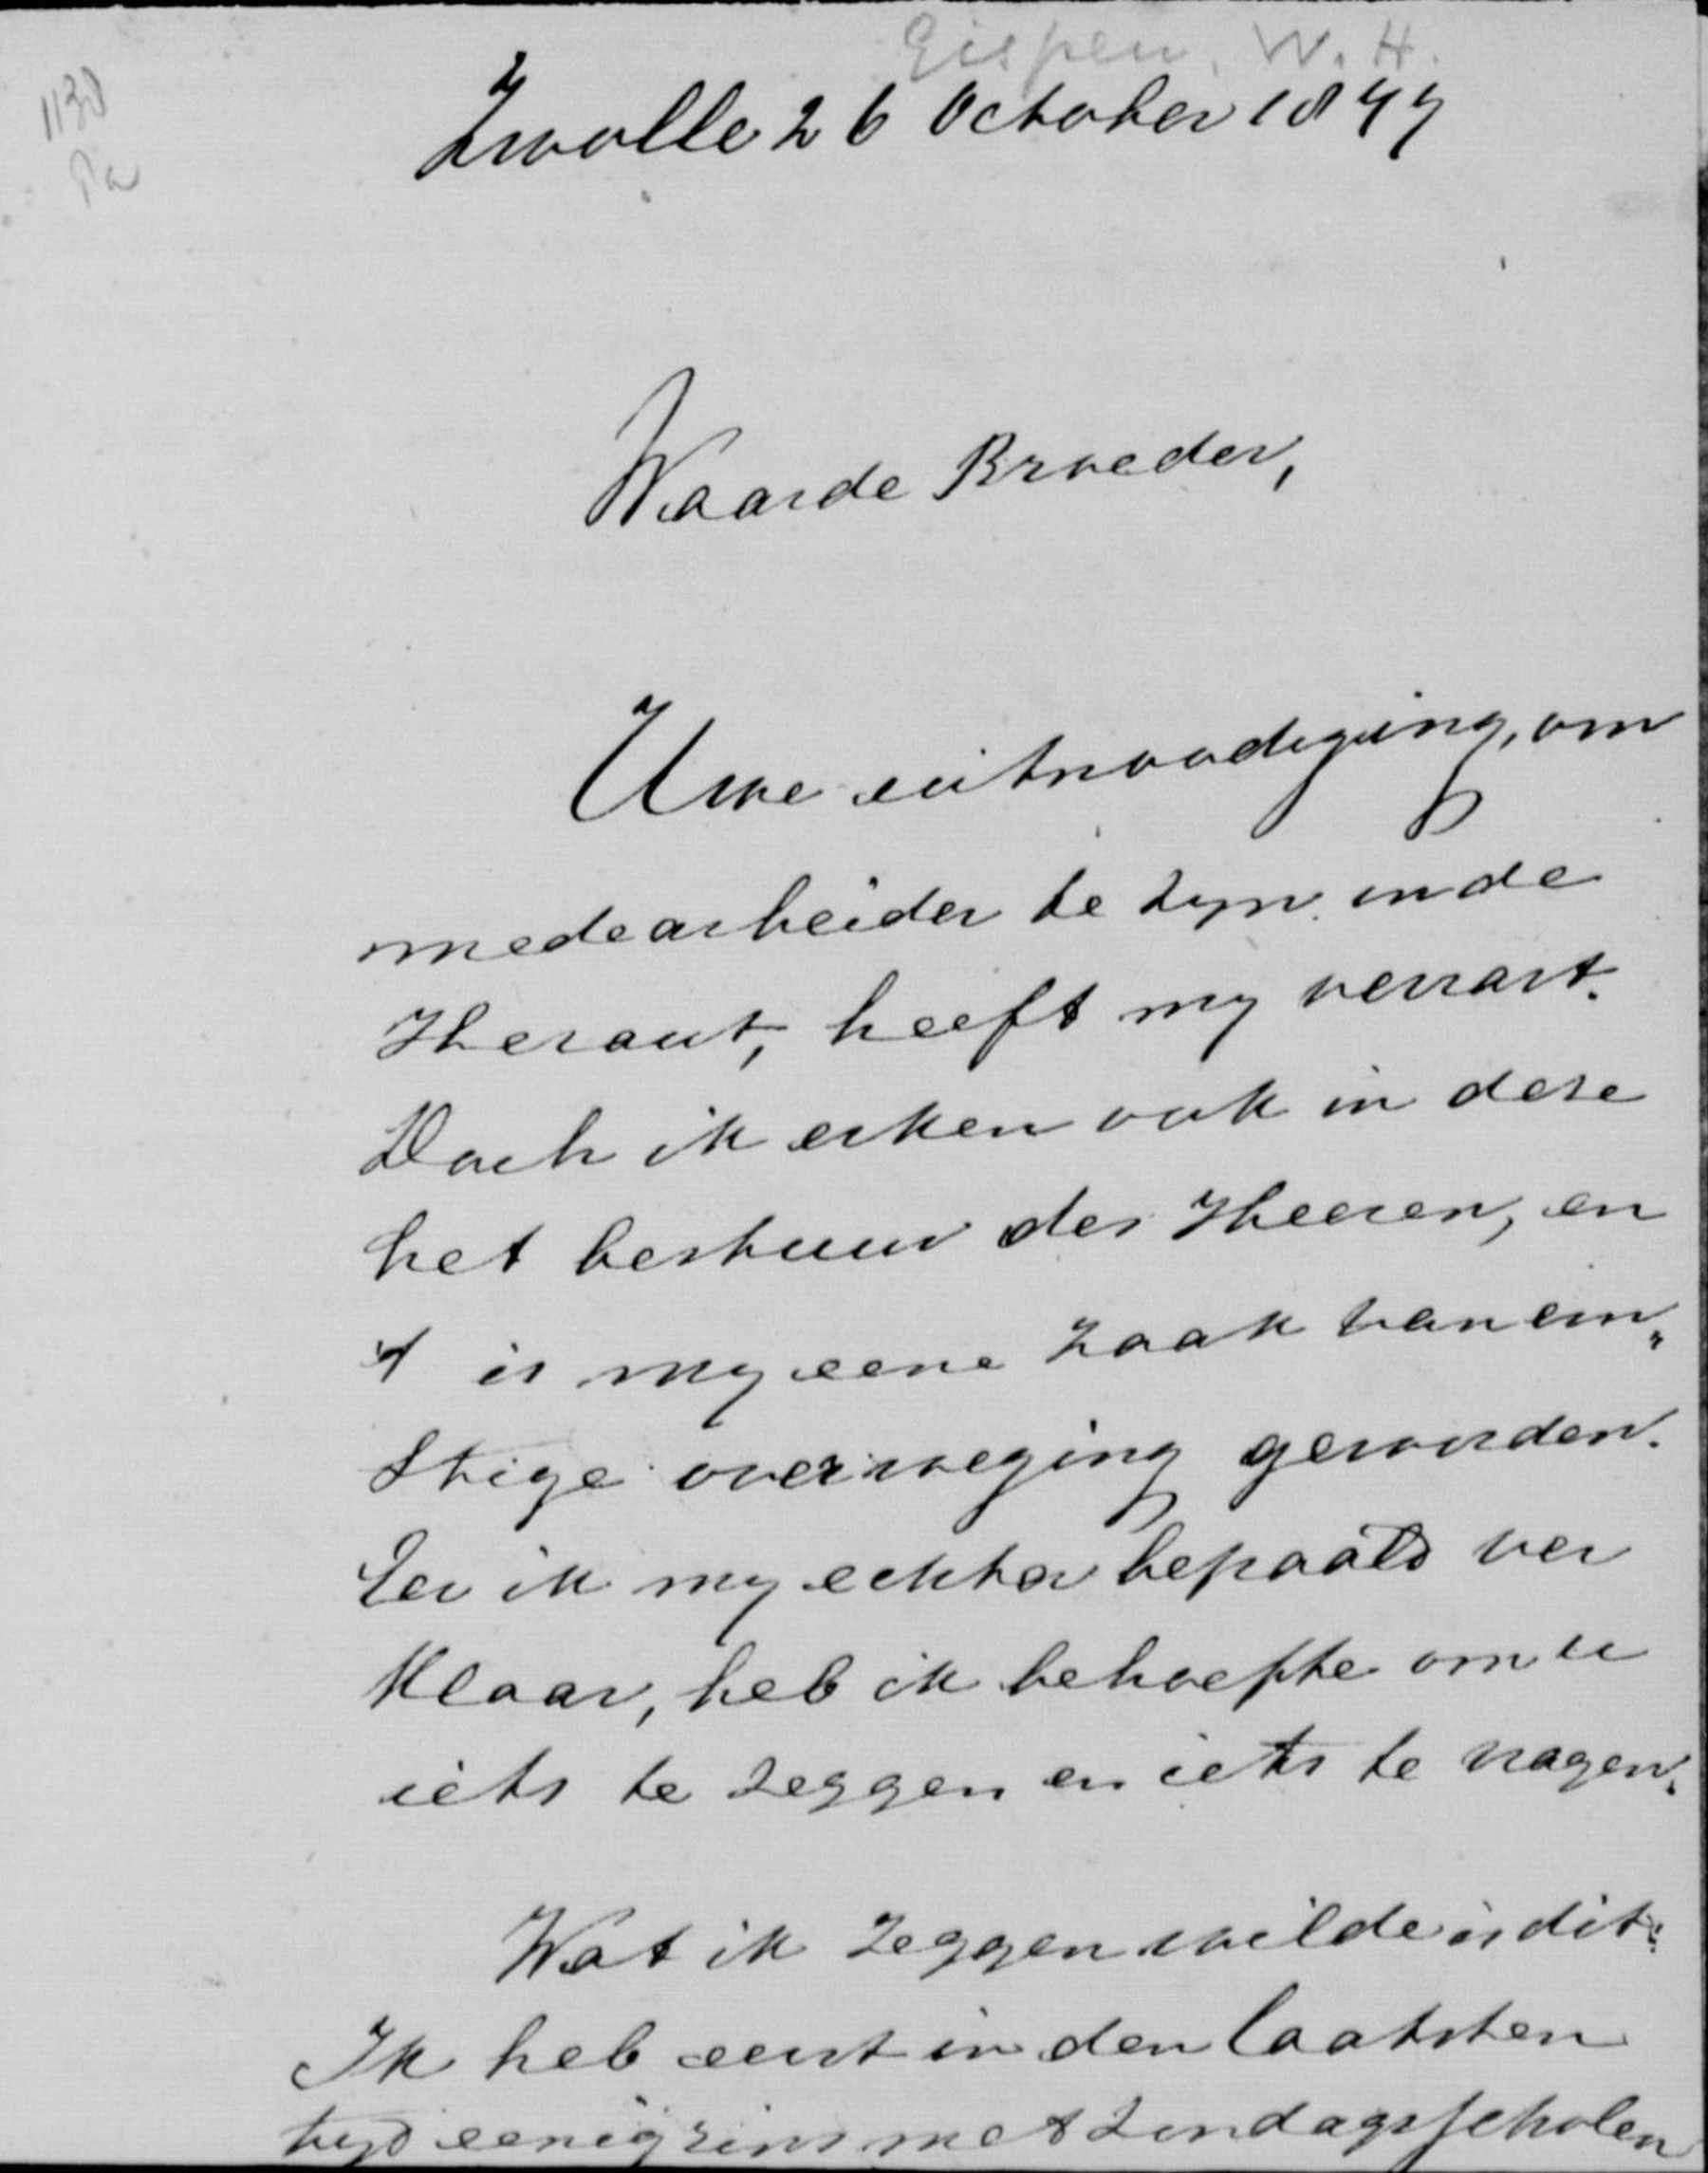 Gispen, W. H.
1130
Pa
Zwolle 26 October 1877
Waarde Broeder,
Uwe uitnoodiging, om
medearbeider te zyn in de
Heraut, heeft my verrast.
Doch ik erken ook in deze
het bestuur des Heeren, en
't is my eene zaak van ern„
stige overweging geworden.
Eer ik my echter bepaald ver
klaar, heb ik behoefte om u
iets te zeggen en iets te vragen.
Wat ik zeggen wilde is dit:
Ik heb eerst in den laatsten
tyd eenigzins met Zondagsscholen